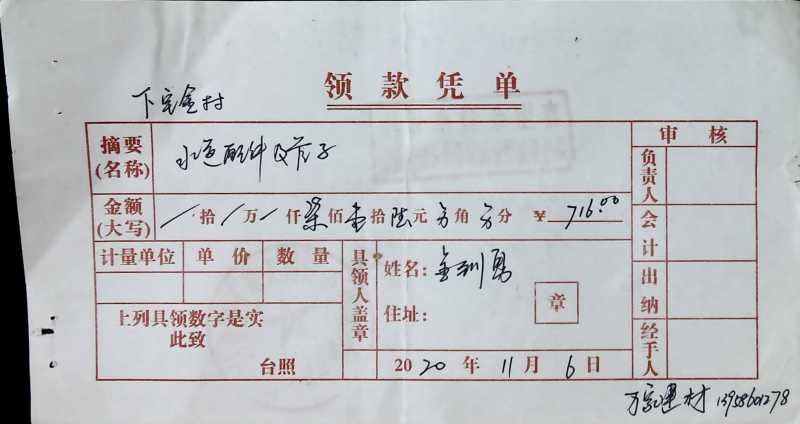 领款凭单
下宅金村
摘要(名称) 水道配件及芯子
金额(大写) 拾 万 仟 柒 佰 壹 拾 陆 元 角 分 ¥ 716.00
审核
负责人
会计
出纳
经手人
计量单位 单价 数量
具领人盖章
姓名:金
住址:
章
上列具领数字是实
此致
台照
2020年11月6日
万家建材 13958601278